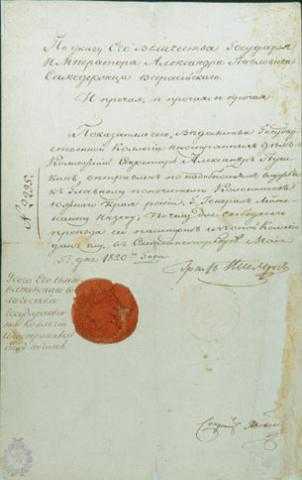 По указу Его Величества Государя
Императора Александра Павловича
Самодержца Всероссийского.
И прочая, и прочая и прочая
Показатель сего, Ведомства Государ-
ственной Коллегии иностранных дел
Коллежский Секретарь Александр Пуш-
кин, отправлен по надобностям службы
к Главному попечителю Колонистов
Южного Края России, Г. Генерал-Лейте-
нанту Инзову; почему для свободного
проезда сей пашпорт из оной Коллегии
дан ему в Санктпетербурге Мая
5 дня 1820 года
Граф Нессельроде
N 2295.
У сего Его Импе-
раторского Ве-
личества
Государствен-
ной Коллегии
Иностранных
дел печать